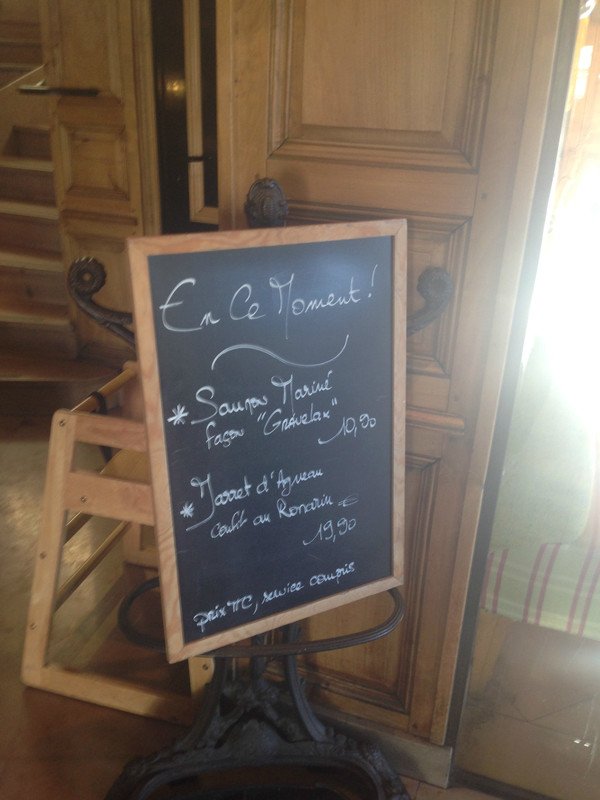 En Ce Moment !
* Saumon Mariné
façon "Gravelax"
10,90
* Jarret d'Agneau
Confit au Romarin €
19,90
prix TTC, service compris